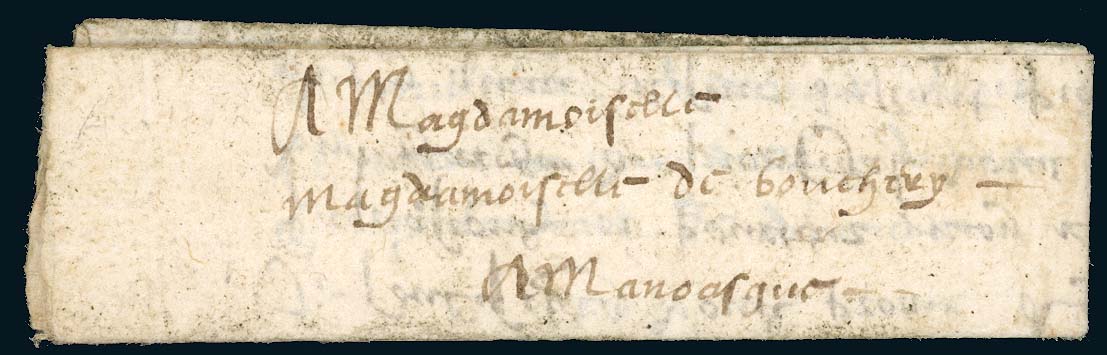 A Magdamoiselle
Magdamoiselle de bouchery
A Manoasque